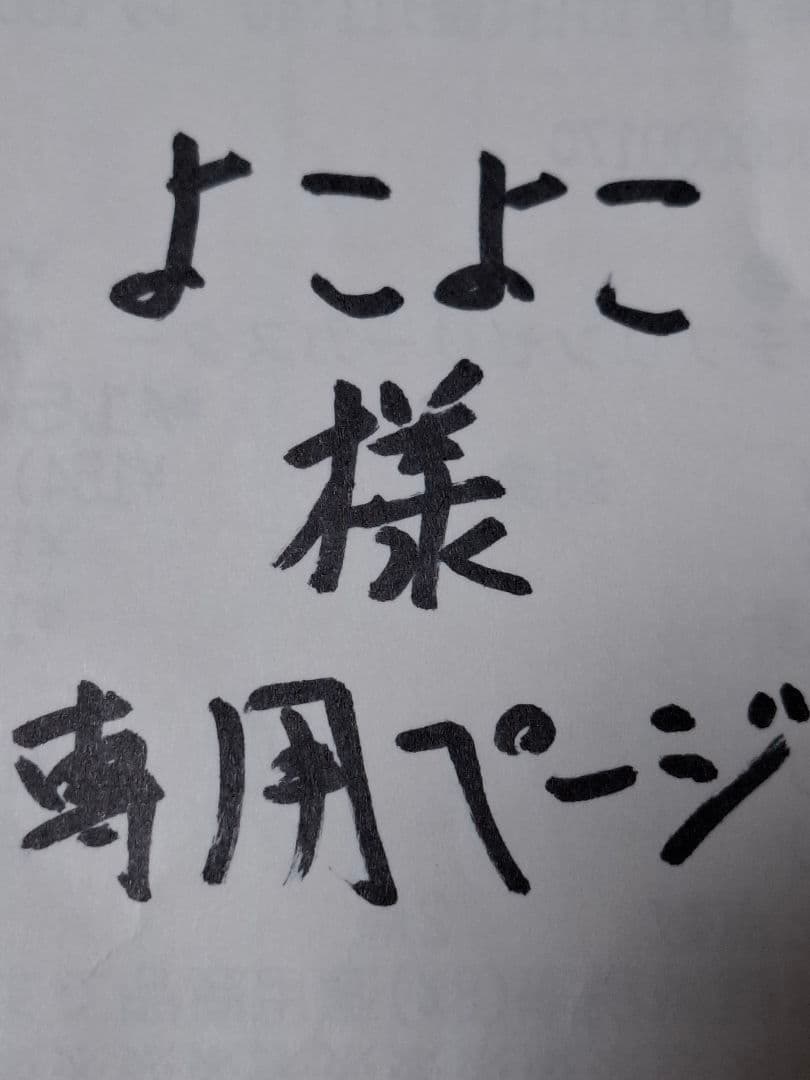 よこよこ
様
専用ページ